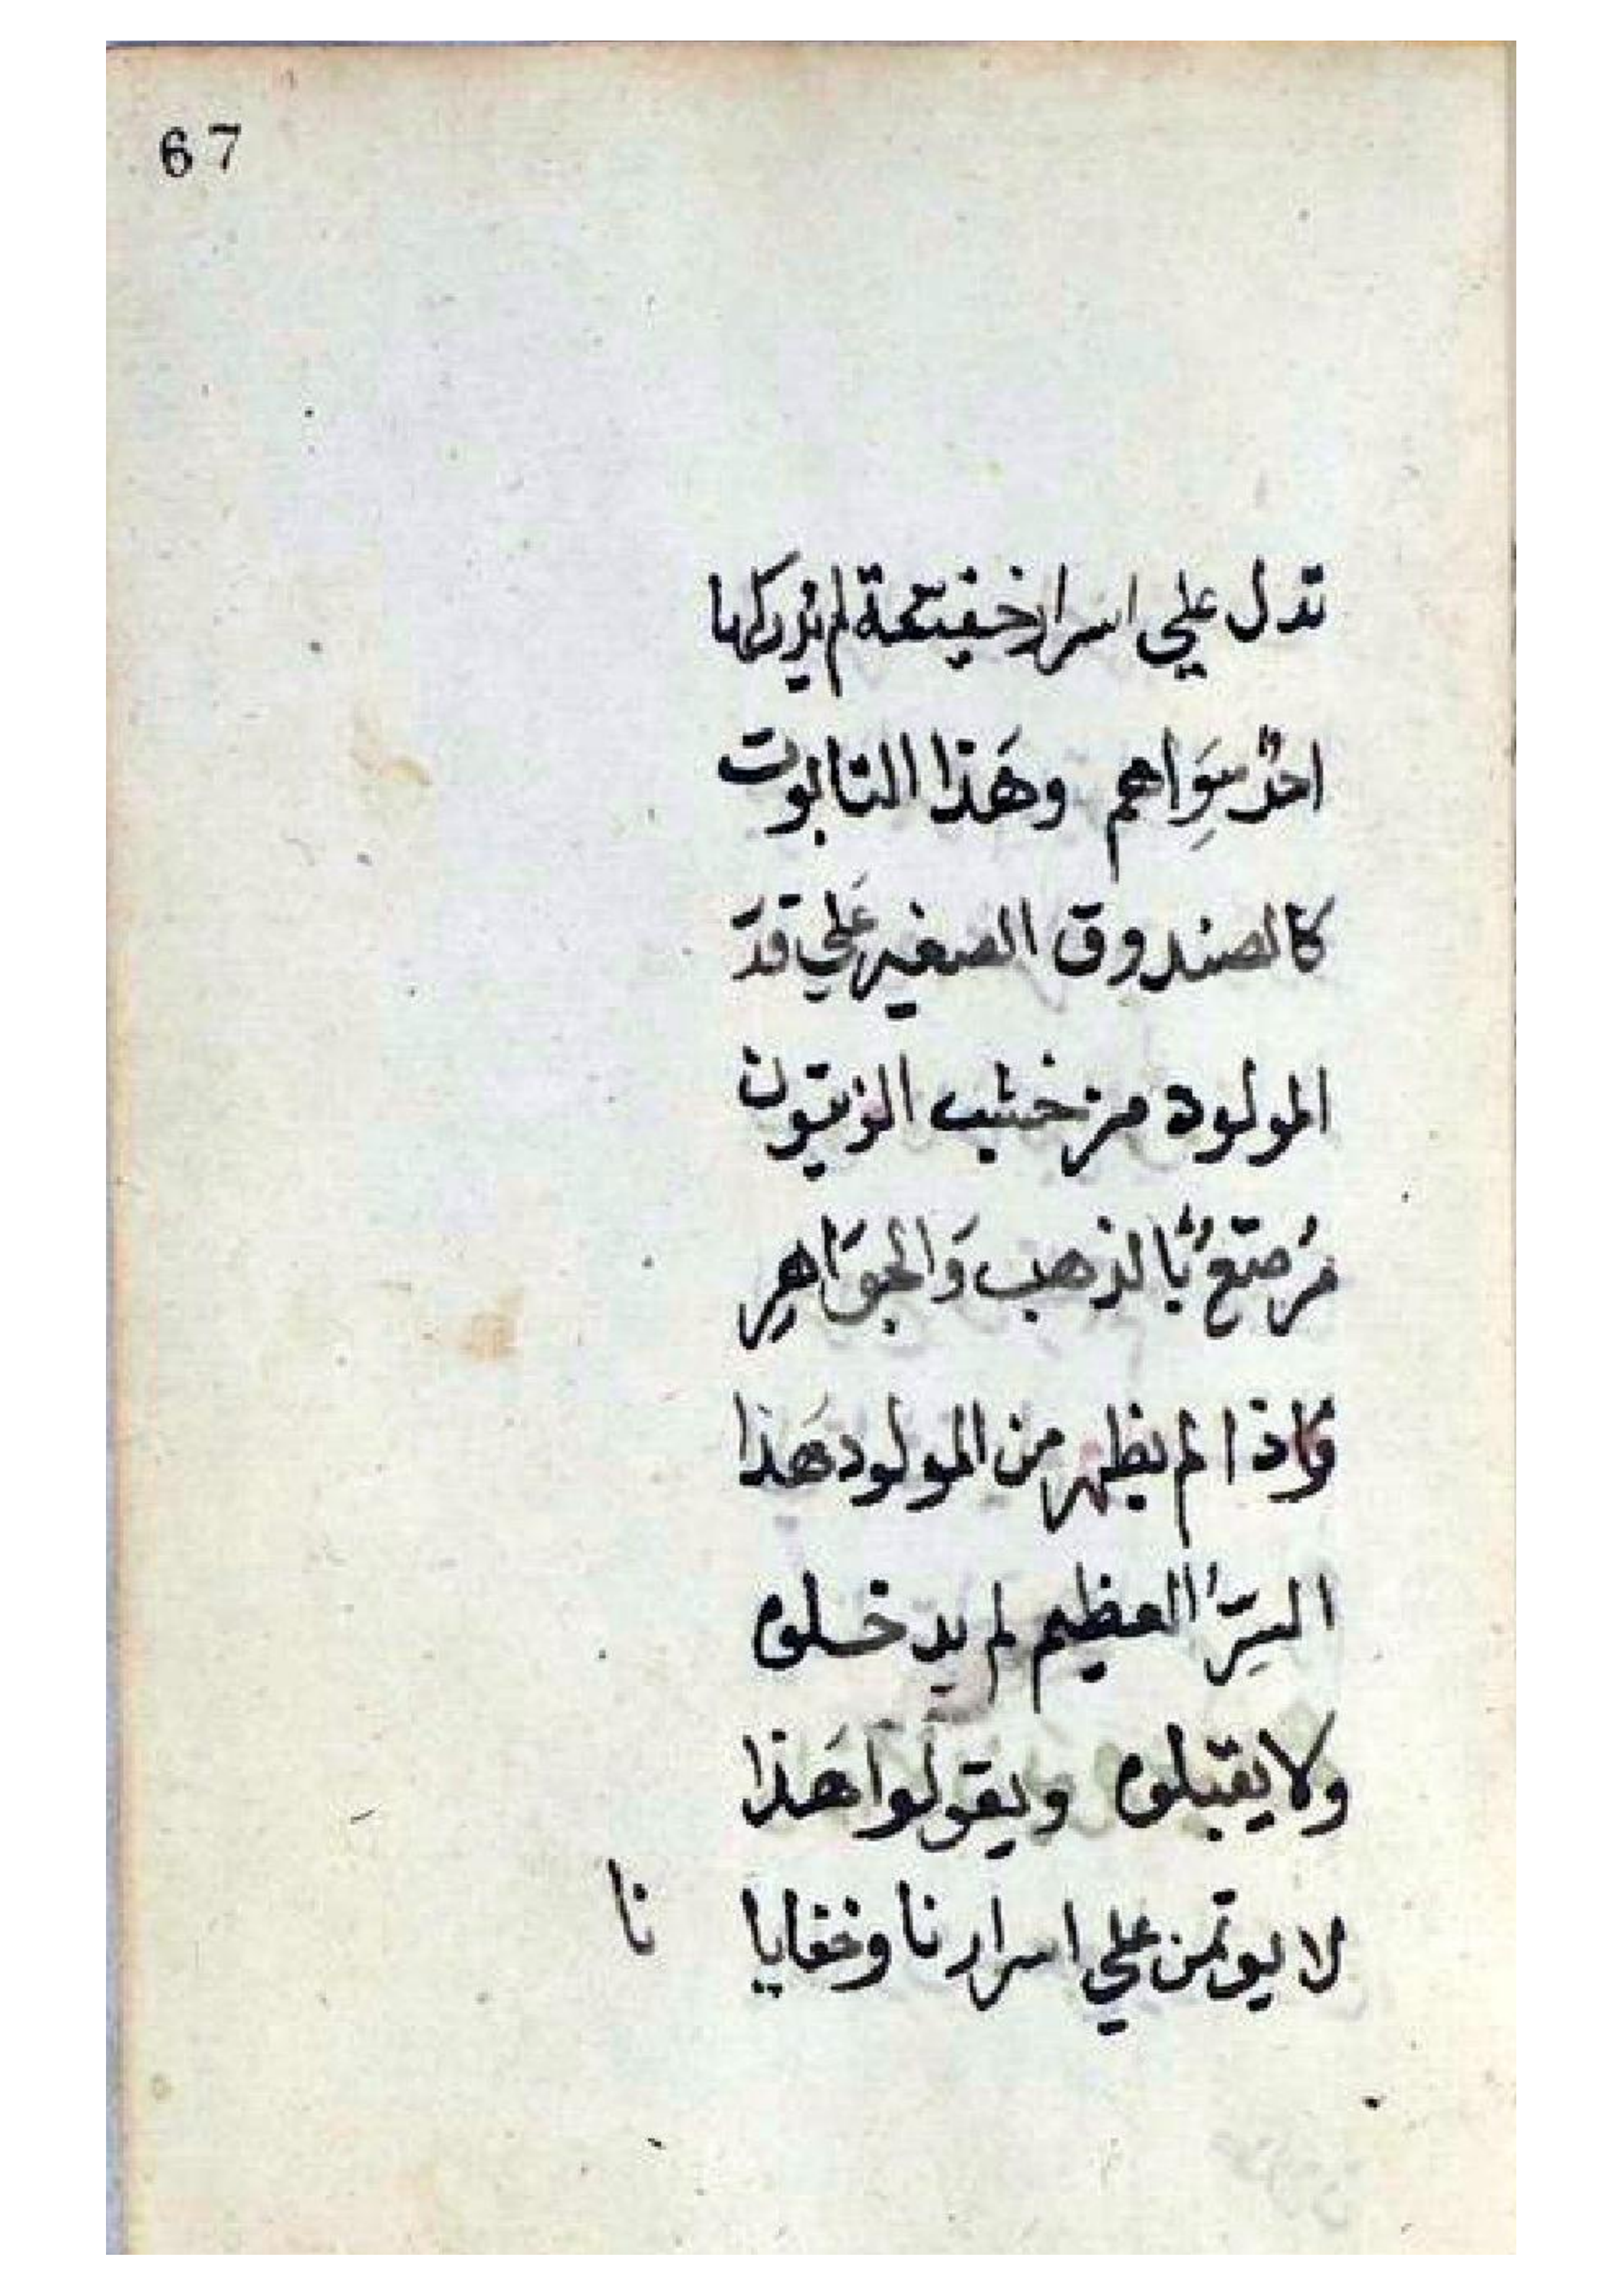 67
تدل علي اسرار خفيتة لم يُدركها
احدٌ سِوَاهم وهَذا التابوت
كالصندوق الصغير عَلي قدّ
المولود من خشب الزيتون
مُرصّعٌ بالذهب وَالجوَاهِر
واذا لم يظهر من المولود هَذا
السِرّ العظيم لم يدخلوه
ولا يقبلوه ويقولوا هَذا
لا يوتمن علي اسرارنا وخفايا نا